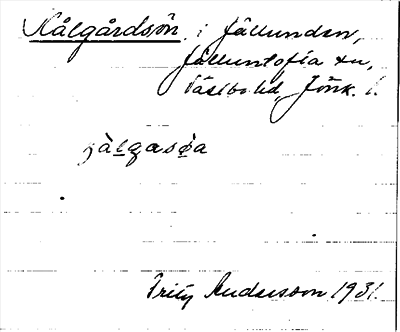 Kålgårdsön i Fällunden,
Jälluntofta sn,
Västbo hd, Jönk. l.
jàlgasø̀a
Fritz Andersson 1931.